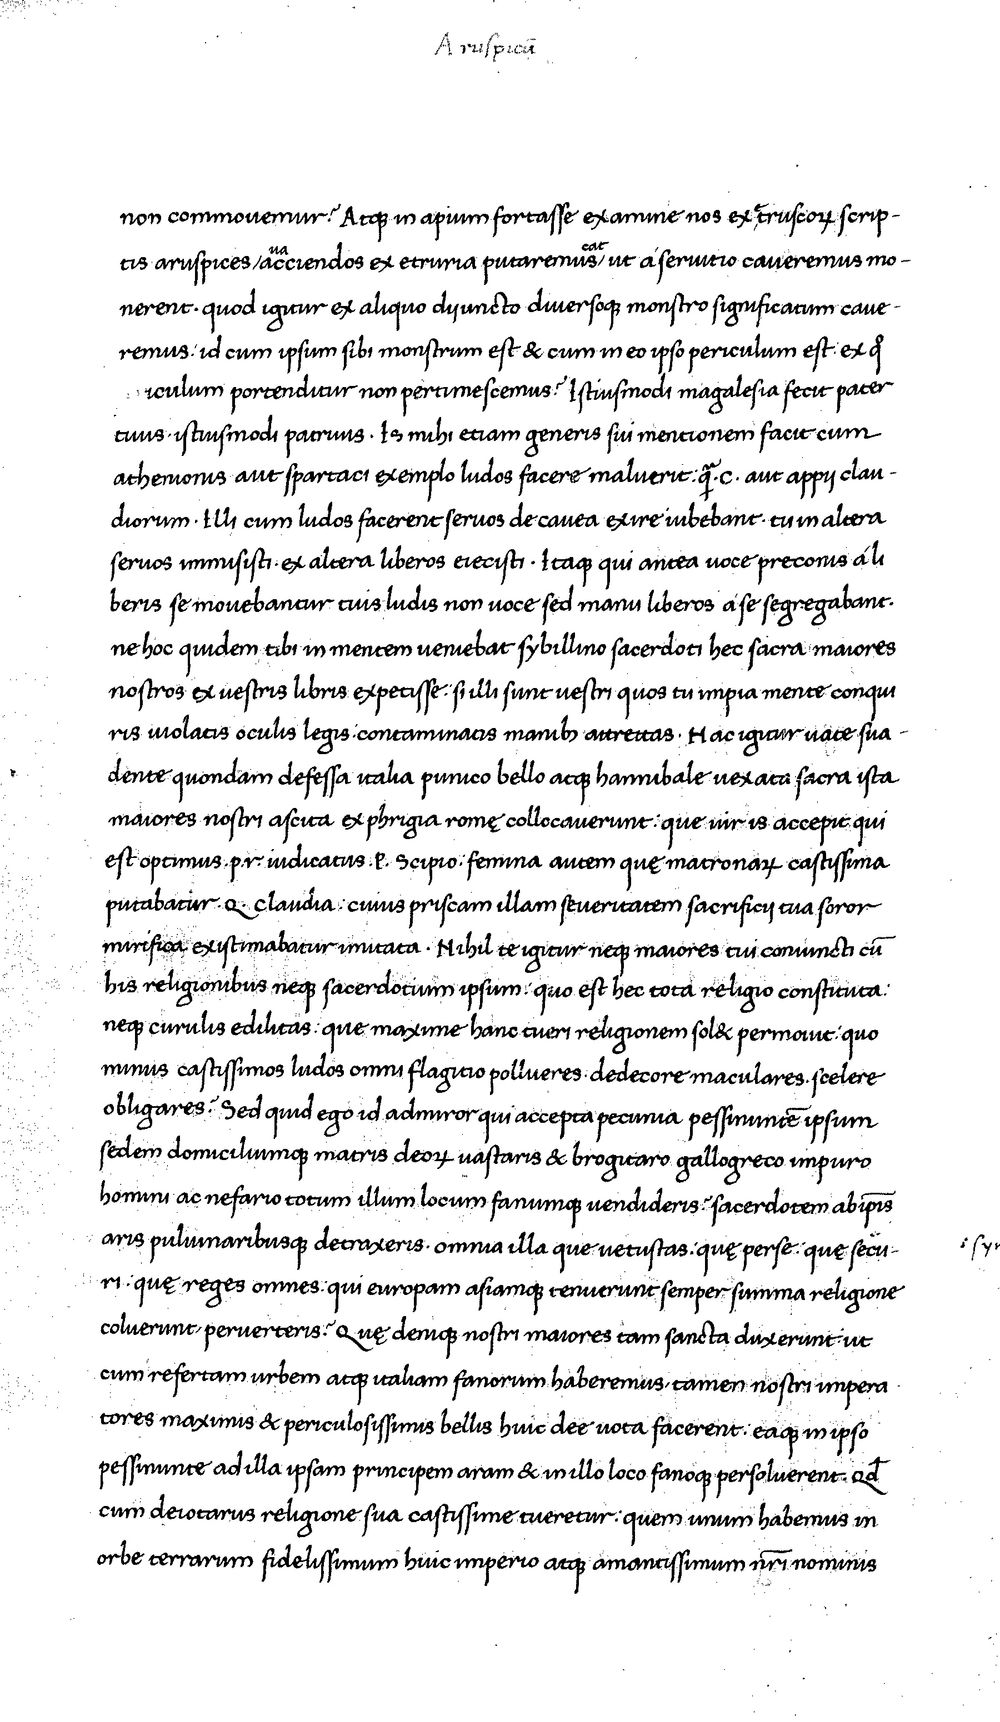 Aruspicū
non commouemur? Atq in apium fortasse examine nos ex etruscoꝝ scrip-
tis aruspices/acciendos ex etruria putaremus/ut á seruitio caueremus mo-
nerent. quod igitur ex aliquo diiuncto diuersoq monstro significatum caue-
remus: id cum ipsum sibi monstrum est & cum in eo ipso periculum est. ex q̊
iculum portenditur non pertimescemus? Istiusmodi magalesia fecit pater
tuus. istiusmodi patruus. Is mihi etiam generis sui mentionem facit cum
athenionis aut spartaci exemplo ludos facere maluerit: q̃.c. aut appij clau-
diorum. Illi cum ludos facerent seruos de cauea exire iubebant. tu in altera
seruos immisisti. ex altera liberos eiecisti. Itaq qui antea uoce preconis á li
beris se mouebantur tuis ludis non uoce sed manu liberos á se segregabant.
ne hoc quidem tibi in mentem ueniebat sybillino sacerdoti hec sacra maiores
nostros ex uestris libris expetisse: si illi sunt uestri quos tu impia mente conqui
ris uiolatis oculis legis: contaminatis manibꝫ attrectas. Hac igitur uate sua-
dente quondam defessa italia punico bello atq hannibale uexata sacra ista
maiores nostri ascita ex phrigia romę collocauerunt: que uir is accepit qui
est optimus .p.r. iudicatus .P. Scipio: femina autem quę matronaꝝ castissima
putabatur .Q. Claudia: cuius priscam illam seueritatem sacrificij tua soror
mirifica existimabatur imitata. Nihil te igitur neq maiores tui coniuncti cū
his religionibus neq sacerdotium ipsum: quo est hec tota religio constituta:
neq curulis edilitas: que maxime hanc tueri religionem sol& permouit: quo
minus castissimos ludos omni flagitio pollueres. dedecore maculares. scelere
obligares? Sed quid ego id admiror qui accepta pecunia pessinuntē ipsum
sedem domiciliumq matris deoꝝ uastaris & brogitaro gallogreco impuro
homini ac nefario totum illum locum fanumq uendideris? sacerdotem ab ip̄is
aris puluinaribusq detraxeris. omnia illa que uetustas: quę perse: quę secu-
ri: quę reges omnes. qui europam asiamq tenuerunt semper summa religione
coluerunt/peruerteris? Quę deniq nostri maiores tam sancta duxerunt: ut
cum refertam urbem atq italiam fanorum haberemus/tamen nostri impera
tores maximis & periculosissimis bellis huic dee uota facerent: eaq in ipso
pessinunte ad illa ipsam principem aram & in illo loco fanoq persoluerent. Qđ
cum deiotarus religione sua castissime tueretur: quem unum habemus in
orbe terrarum fidelissimum huic imperio atq amantissimum nr̄i nominis